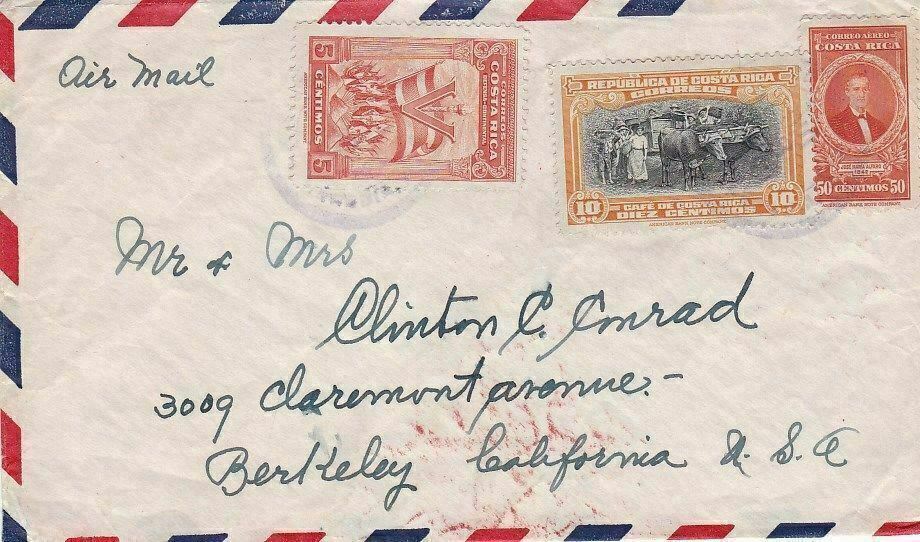 Air Mail
CORREOS
COSTA RICA
5 CENTIMOS 5
REPUBLICA DE COSTA RICA
CORREOS
10 10
CAFÉ DE COSTA RICA
DIEZ CENTIMOS
AMERICAN BANK NOTE COMPANY
CORREO AÉREO
COSTA RICA
JOSÉ MARÍA ALFARO
50 CENTIMOS 50
AMERICAN BANK NOTE COMPANY
Mr & Mrs
Clinton C. Conrad
3009 Claremont avenue.-
Berkeley California U.S.A